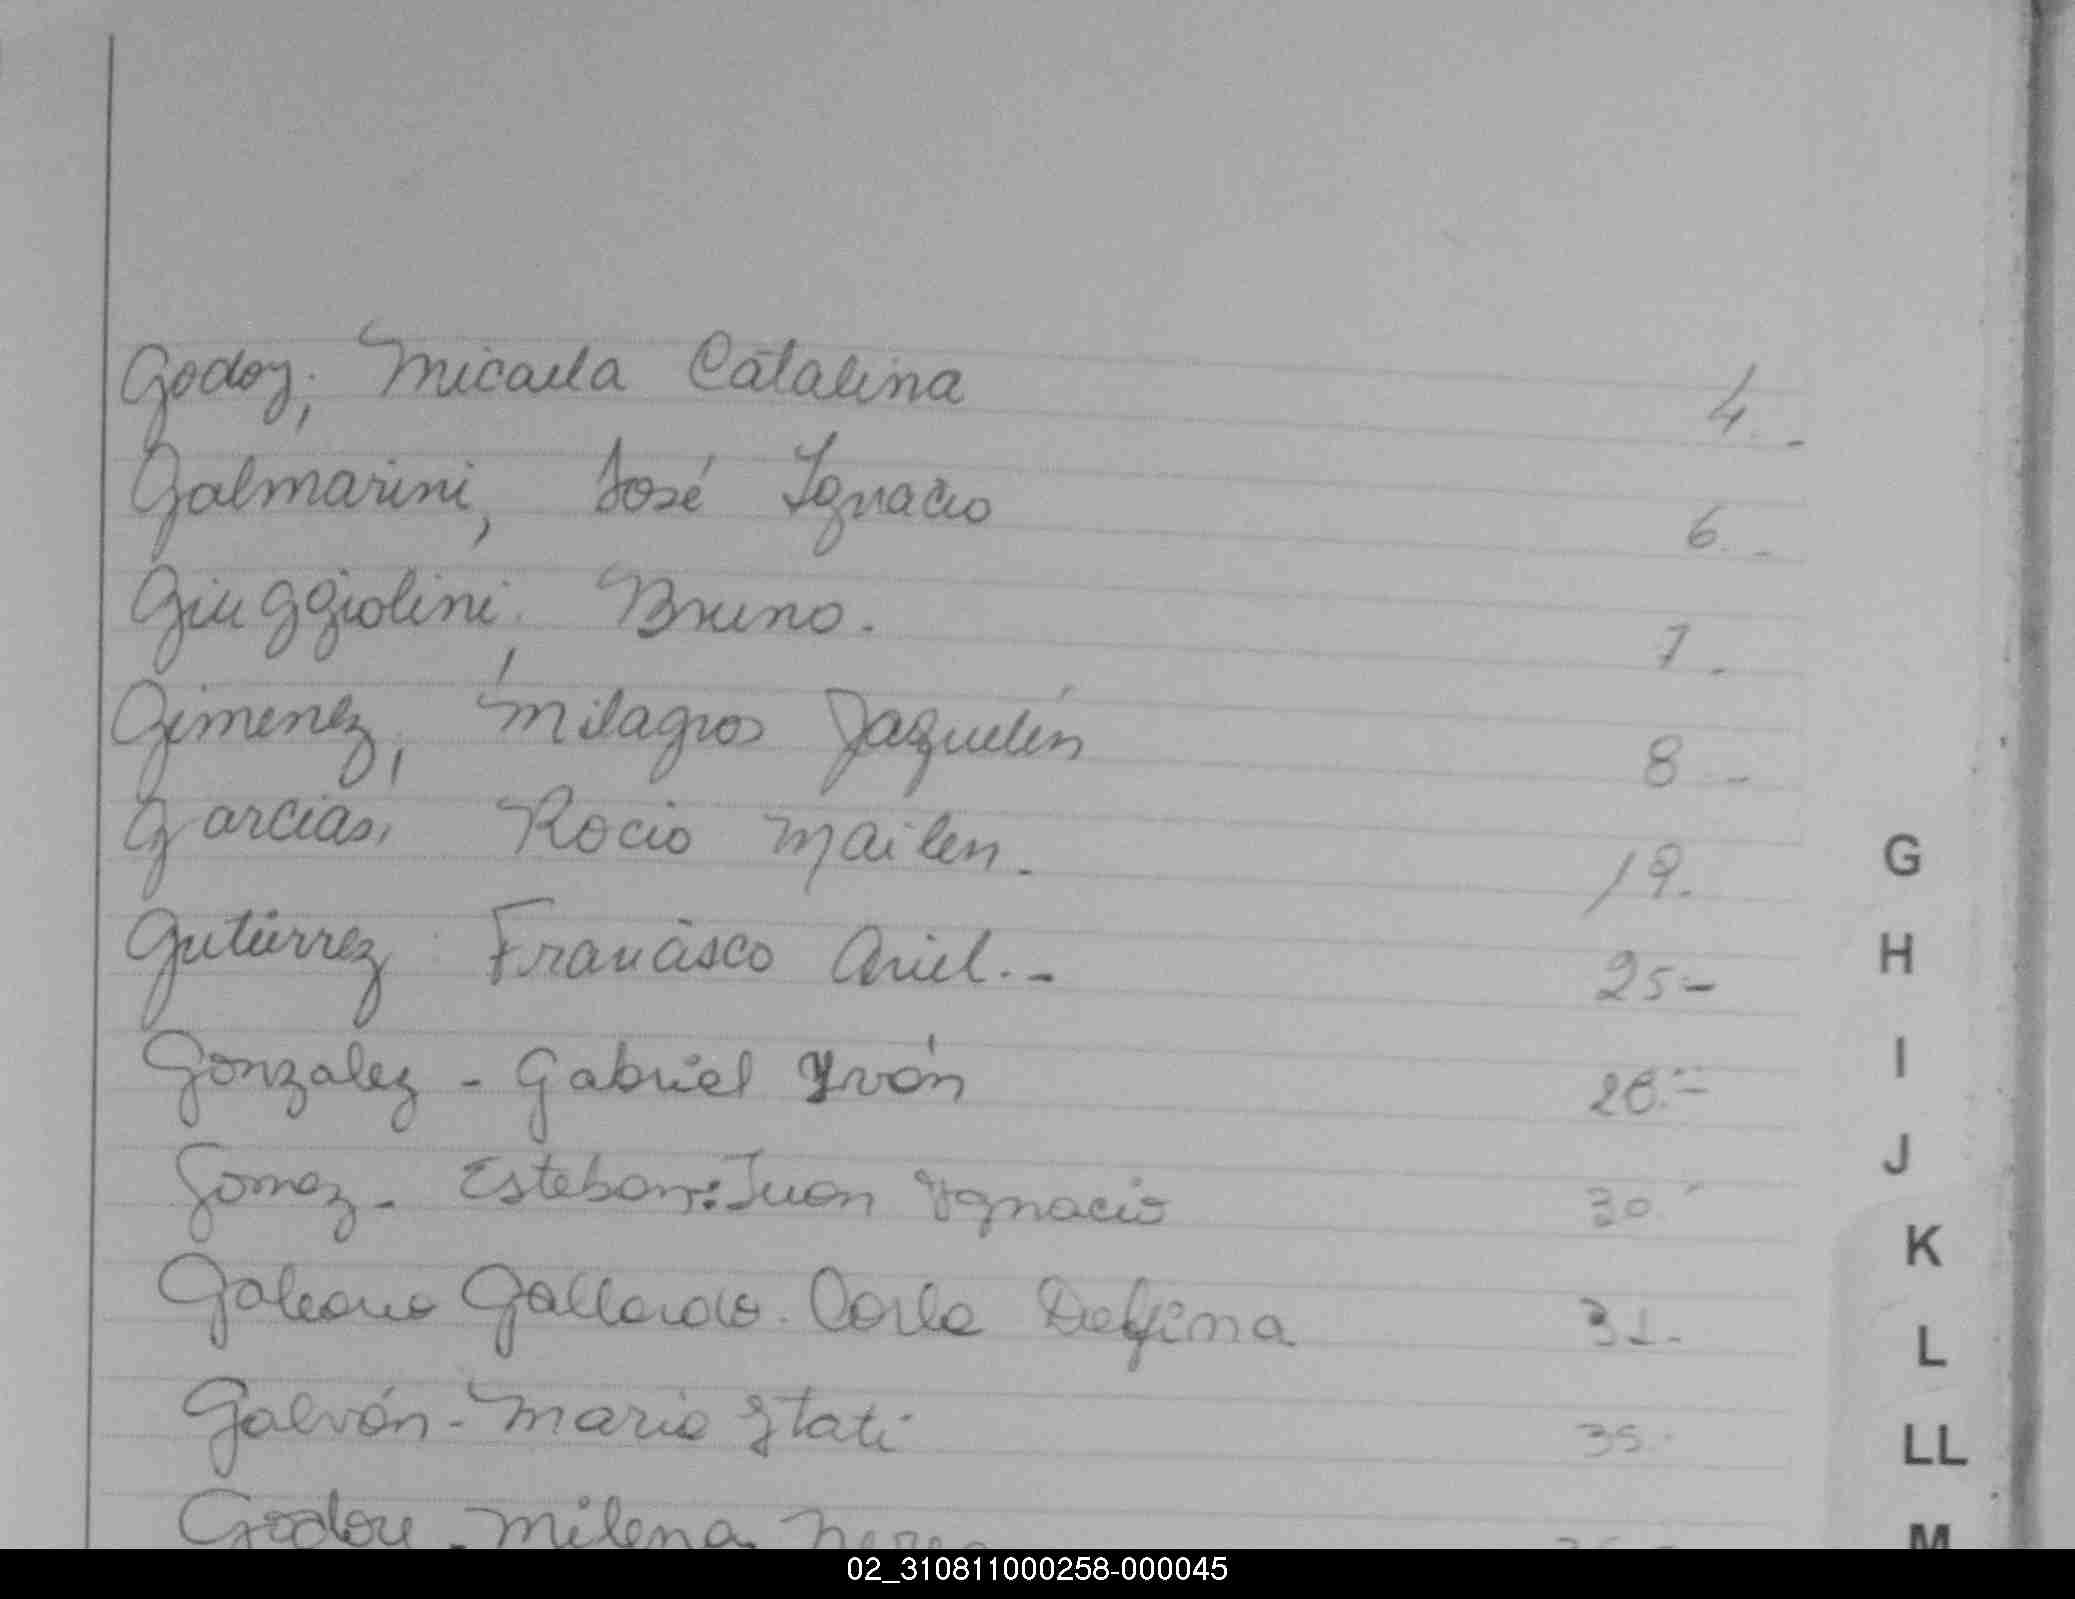 Godoy, Micaela Catalina 4.-
Galmarini, José Ignacio 6.-
Giuggiolini, Bruno. 7.-
Gimenez, Milagros Jaquelín 8-
Garcias, Rocio Mailen.- 19.-
Gutierrez Francisco Ariel.- 25-
Gonzalez - Gabriel Yván 28.-
Gomez - Esteban: Juan Ygnacio 30-
Galeano Gallardo. Carla Delfina 31.-
Galván - Maria Itati 35.
Godoy - Milena
G
H
I
J
K
L
LL
M
02_310811000258-000045